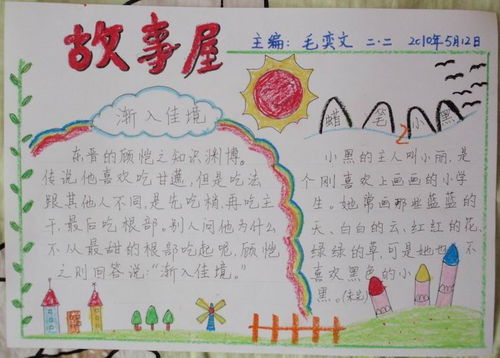 故事屋
主编：毛奕文 二·二 2010年5月12日
渐入佳境
东晋的顾恺之知识渊博。
传说，他喜欢吃甘蔗，但是吃法
跟其他人不同，是先吃梢，再吃主
干，最后吃根部。别人问他为什么
不从最甜的根部吃起呢，顾恺
之则回答说：“渐入佳境。”
蜡笔小黑
2
小黑的主人叫小丽，是
个刚喜欢上画画的小学
生。她常画那些蓝蓝的
天、白白的云、红红的花、
绿绿的草，可是她也不
喜欢黑色的小
黑。(未完)